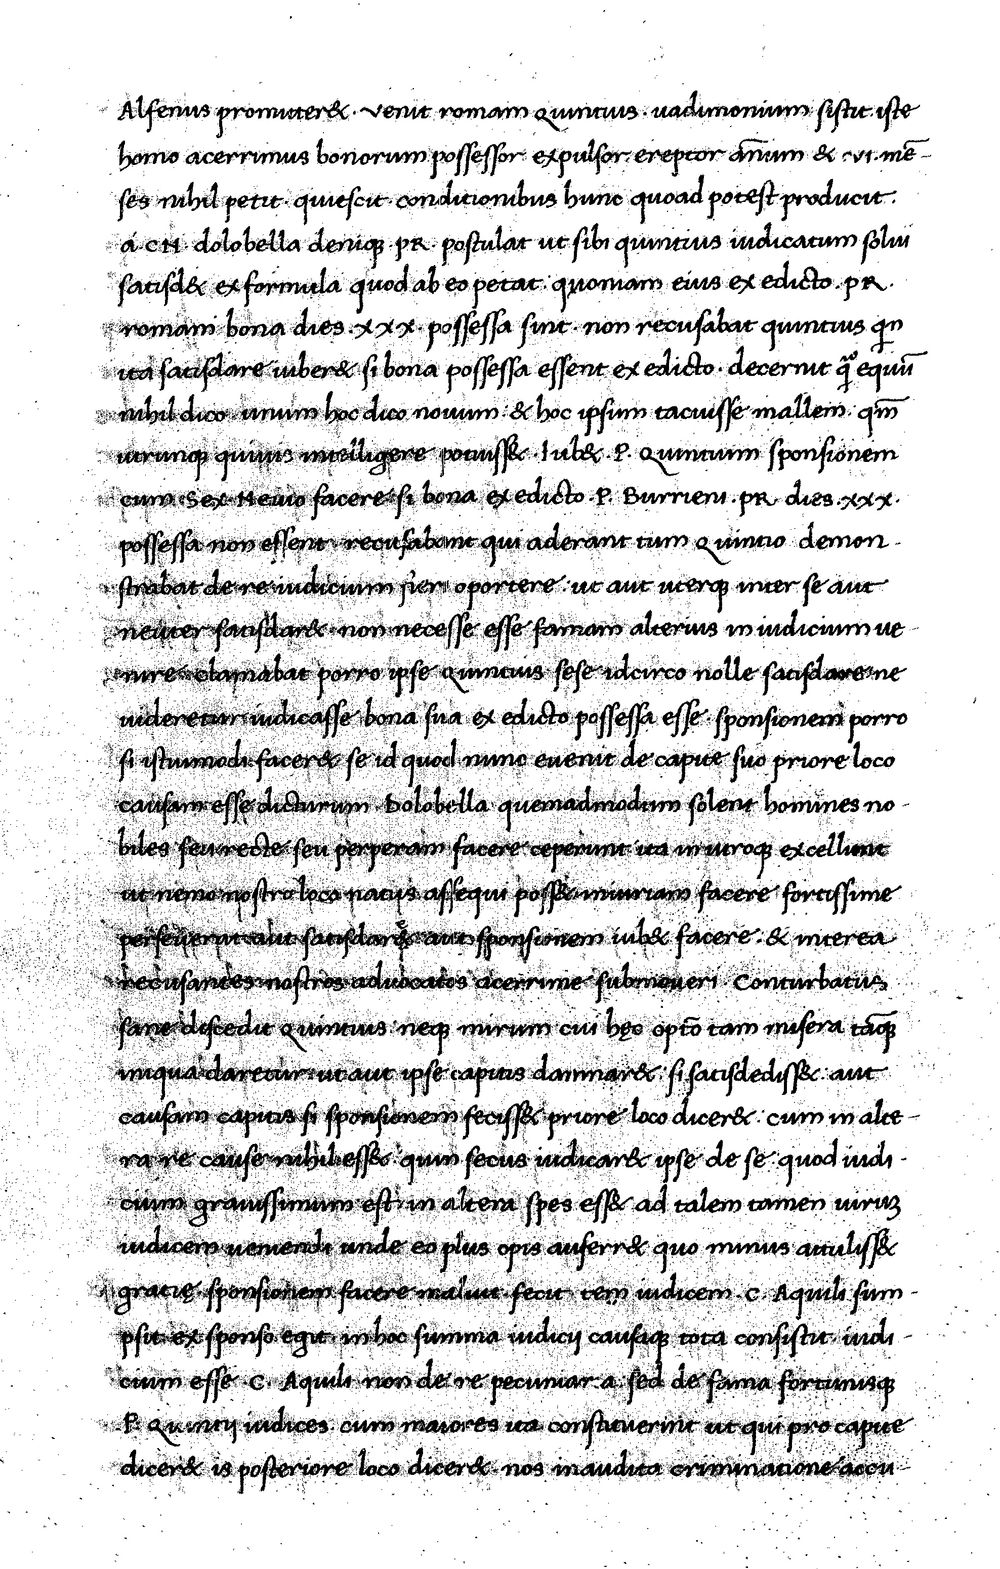 Alfenus promitter& . Venit romam Quintius . uadimonium sistit . iste
homo acerrimus bonorum possessor . expulsor . ereptor ānum & . vi . mē-
ses nihil petit . quiescit . condicionibus hunc quoad potest producit .
a CN dolobella deniq; PR . postulat ut sibi quintius iudicatum solui
satisd& ex formula quod ab eo petat . quoniam eius ex edicto . PR .
romani bona dies . xxx . possessa sint . non recusabat quintius qn
ita satisdare iuber& si bona possessa essent ex edicto . decernit q̃ equū
nihil dico . unum hoc dico nouum . & hoc ipsum tacuisse mallem . qm̄
utrunq; quiuis intelligere potuiss& . Iub& . P . Quintium sponsionem
cum Sex Neuio facere si bona ex edicto . P . Burrieni . PR dies . xxx .
possessa non essent . recusabant qui aderant tum Quintio demon-
strabat de re iudicium fieri oportere . ut aut uterq; inter se aut
neuter satisdar& . non necesse esse famam alterius in iudicium ue-
nire . clamabat porro ipse Quintius sese idcirco nolle satisdare ne
uideretur iudicasse bona sua ex edicto possessa esse . sponsionem porro
si istiusmodi facer& se id quod nunc euenit de capite suo priore loco
causam esse dicturum . Dolobella quemadmodum solent homines no-
biles seu recte seu perperam facere ceperunt ita in utroq; excellunt
ut nemo nostro loco natus assequi poss& iniuriam facere fortissime
perseuerat aut satisdare aut sponsionem iub& facere . & interea
recusantes nostros aduocatos acerrime submoueri . Conturbatus
sane discedit Quintius neq; mirum cui hęc optō tam misera tāq;
iniqua daretur . ut aut ipse capitis damnar& . si satisdediss& . aut
causam capitis si sponsionem feciss& priore loco dicer& . cum in alte-
ra re cause nihil ess& quin secus iudicar& ipse de se . quod iudi-
cium grauissimum est . in altera spes ess& ad talem tamen uiruz
iudicem ueniendi unde eo plus opis auferr& quo minus attuliss&
gratię . sponsionem facere maluit . fecit . tem iudicem . C . Aquili sum-
psit . ex sponso egit . in hoc summa iudicij causaq; tota consistit . iudi-
cium esse C . Aquili non de re pecuniar a . sed de fama fortunisq;
P . Quintij iudices . cum maiores ita constituerint ut qui pro capite
dicer& is posteriore loco dicer& . nos inaudita criminatione accu-